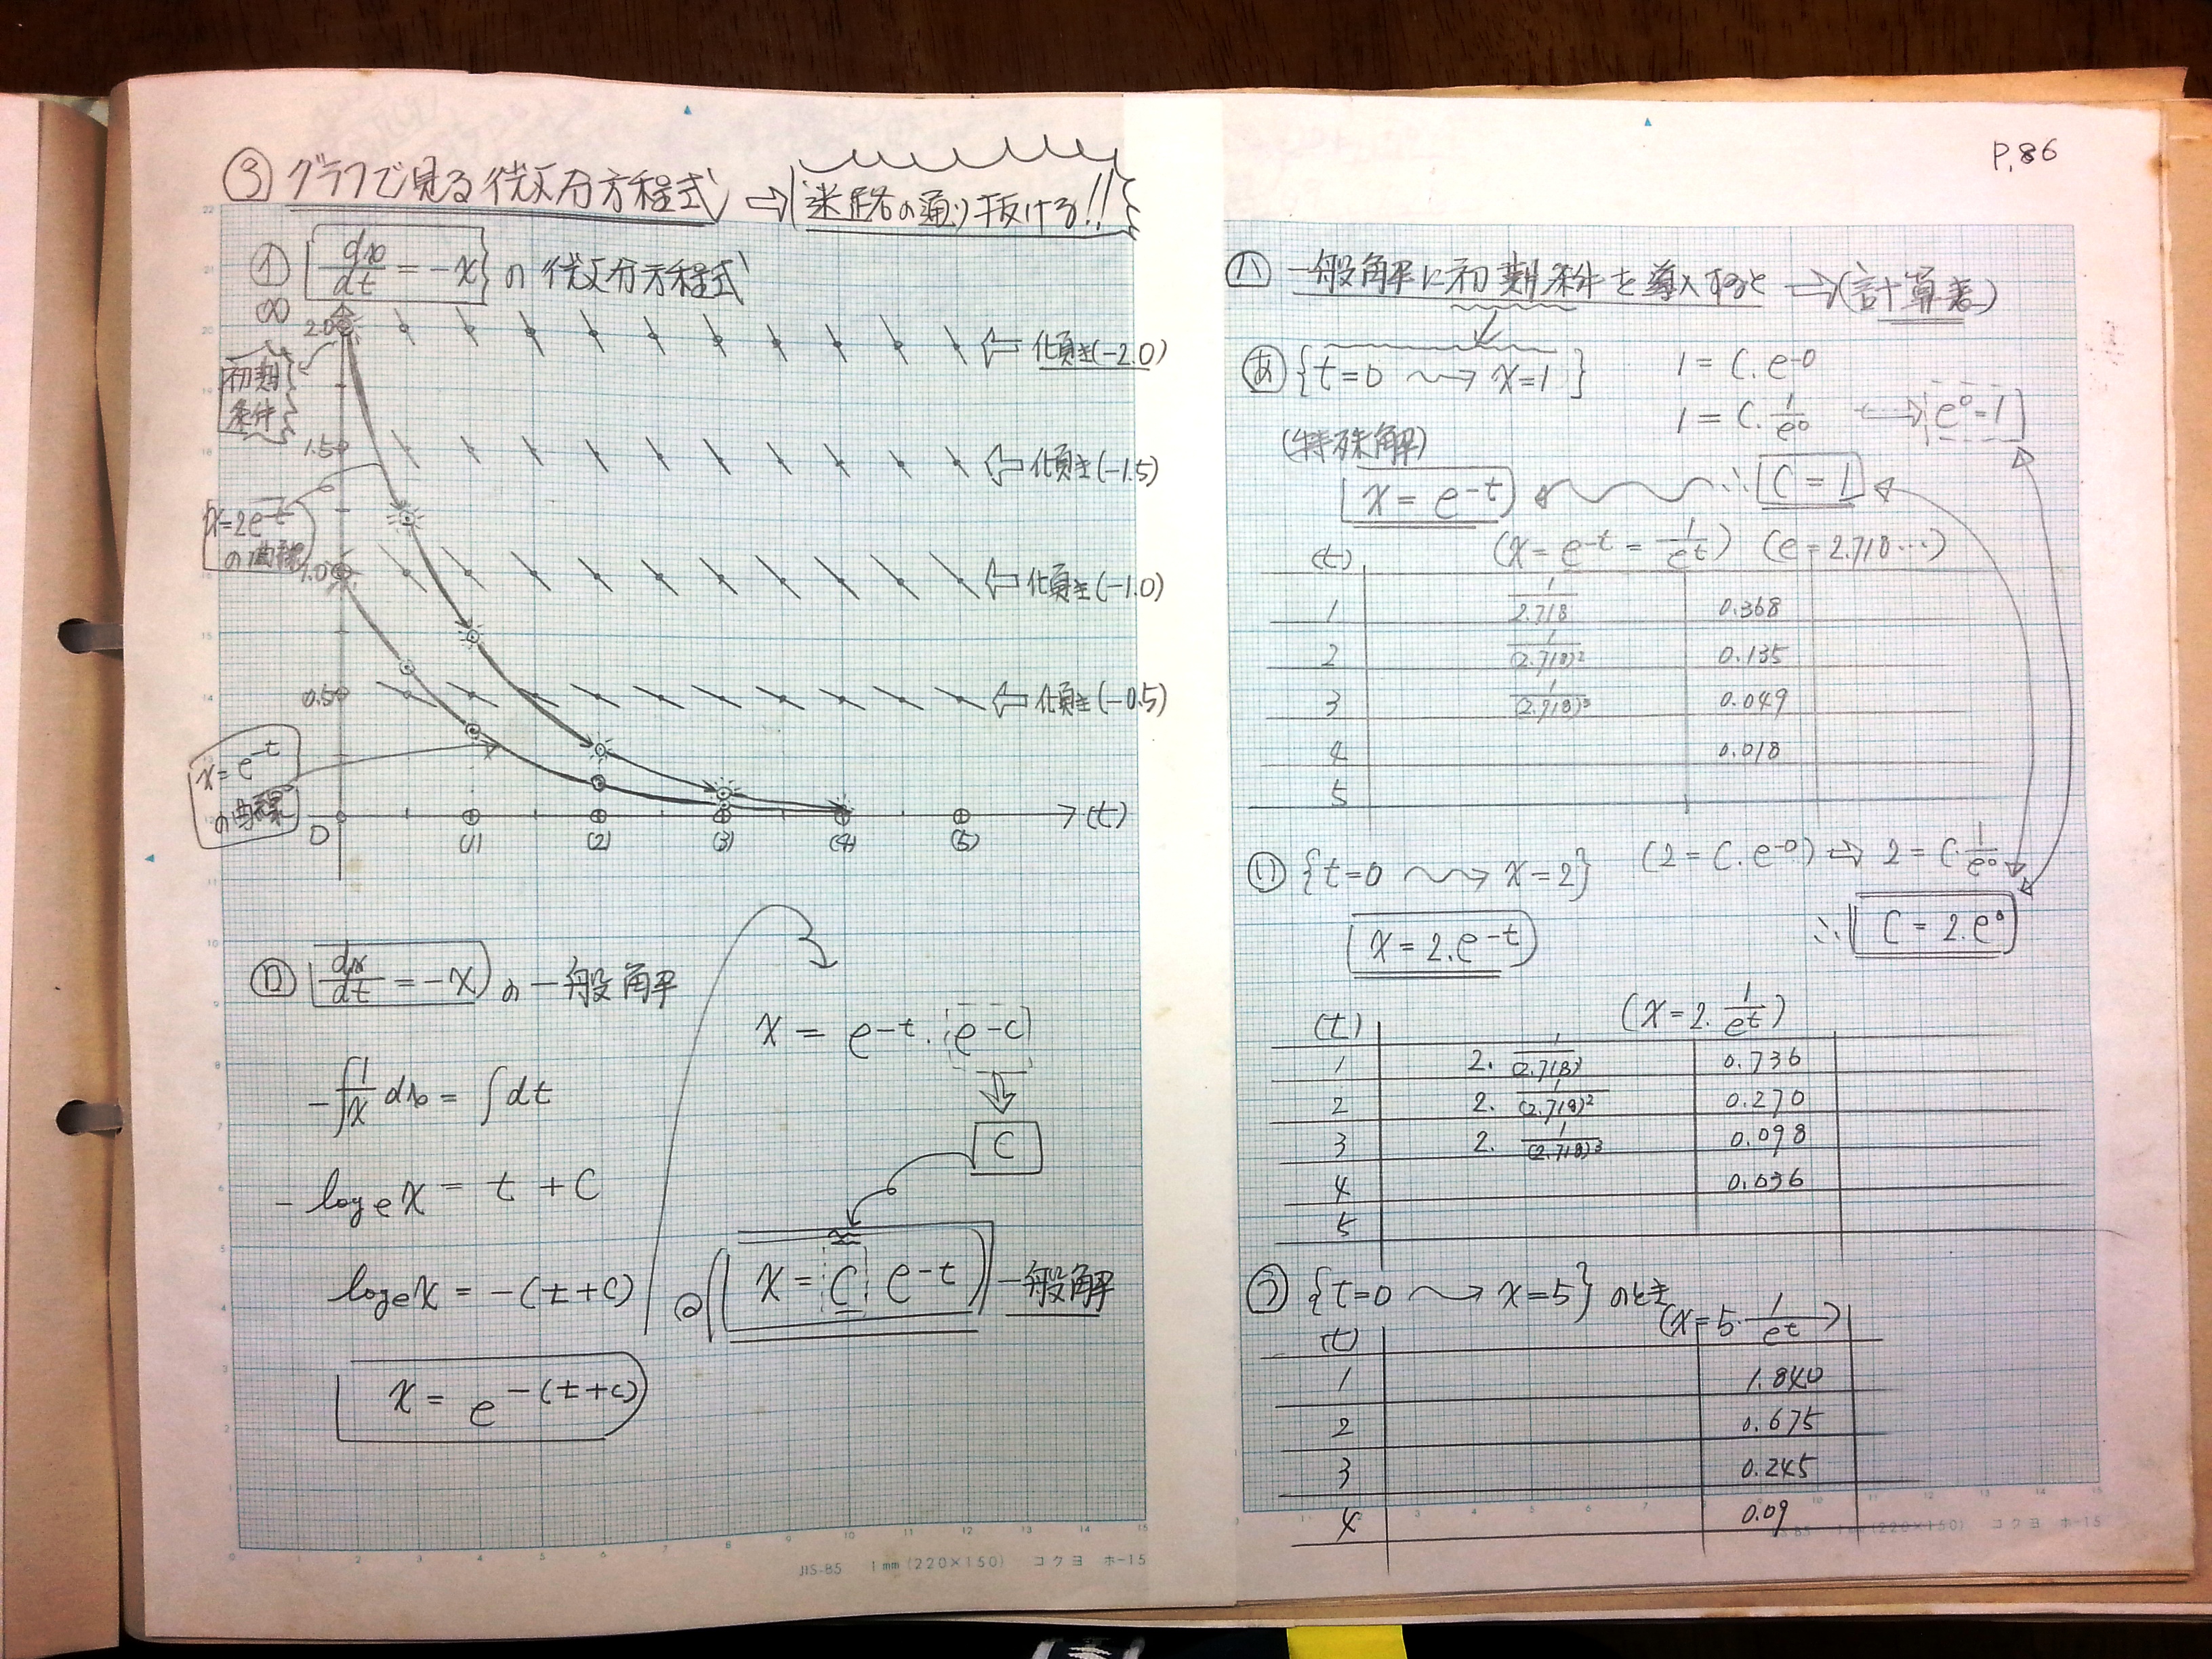 ③ グラフで見る微分方程式 ⇨ 迷路の通り�ける!!
㋑ [dx/dt = -x] の微分方程式
∞
2.0
⇦ 傾き(-2.0)
初期
条件
1.5
⇦ 傾き(-1.5)
x=2e^-t
の曲線
1.0
⇦ 傾き(-1.0)
0.5
⇦ 傾き(-0.5)
x=e^-t
の曲線
0 (1) (2) (3) (4) (5) →(t)
㋺ [dx/dt = -x] の一般解
-∫1/x dx = ∫dt
-log e x = t + C
log e x = -(t+C)
x = e^-(t+c)
x = e^-t · e^-c
C
x = C e^-t 一般解
JIS-B5 1mm (220×150) コクヨ ホ-15
P.86
㋩ 一般解に初期条件を導入すると ⇨(計算表)
あ {t=0 → x=1} 1 = C.e^-0
1 = C.1/e^0 ← e^0=1
(特殊解)
x = e^-t ← ∴ C=1
(t) (x = e^-t = 1/e^t) (e=2.718…)
1 1/2.718 0.368
2 1/(2.718)^2 0.135
3 1/(2.718)^3 0.049
4 0.018
5
い {t=0 → x=2} (2=C.e^-0) ⇨ 2=C.1/e^0
x=2.e^-t ∴ C=2.e^0
(t) (x=2.1/e^t)
1 2. 1/(2.718) 0.736
2 2. 1/(2.718)^2 0.270
3 2. 1/(2.718)^3 0.098
4 0.036
5
う {t=0 → x=5} のとき
(t) (x=5.1/e^t)
1 1.840
2 0.675
3 0.245
4 0.09
1mm (220×150) コクヨ ホ-15